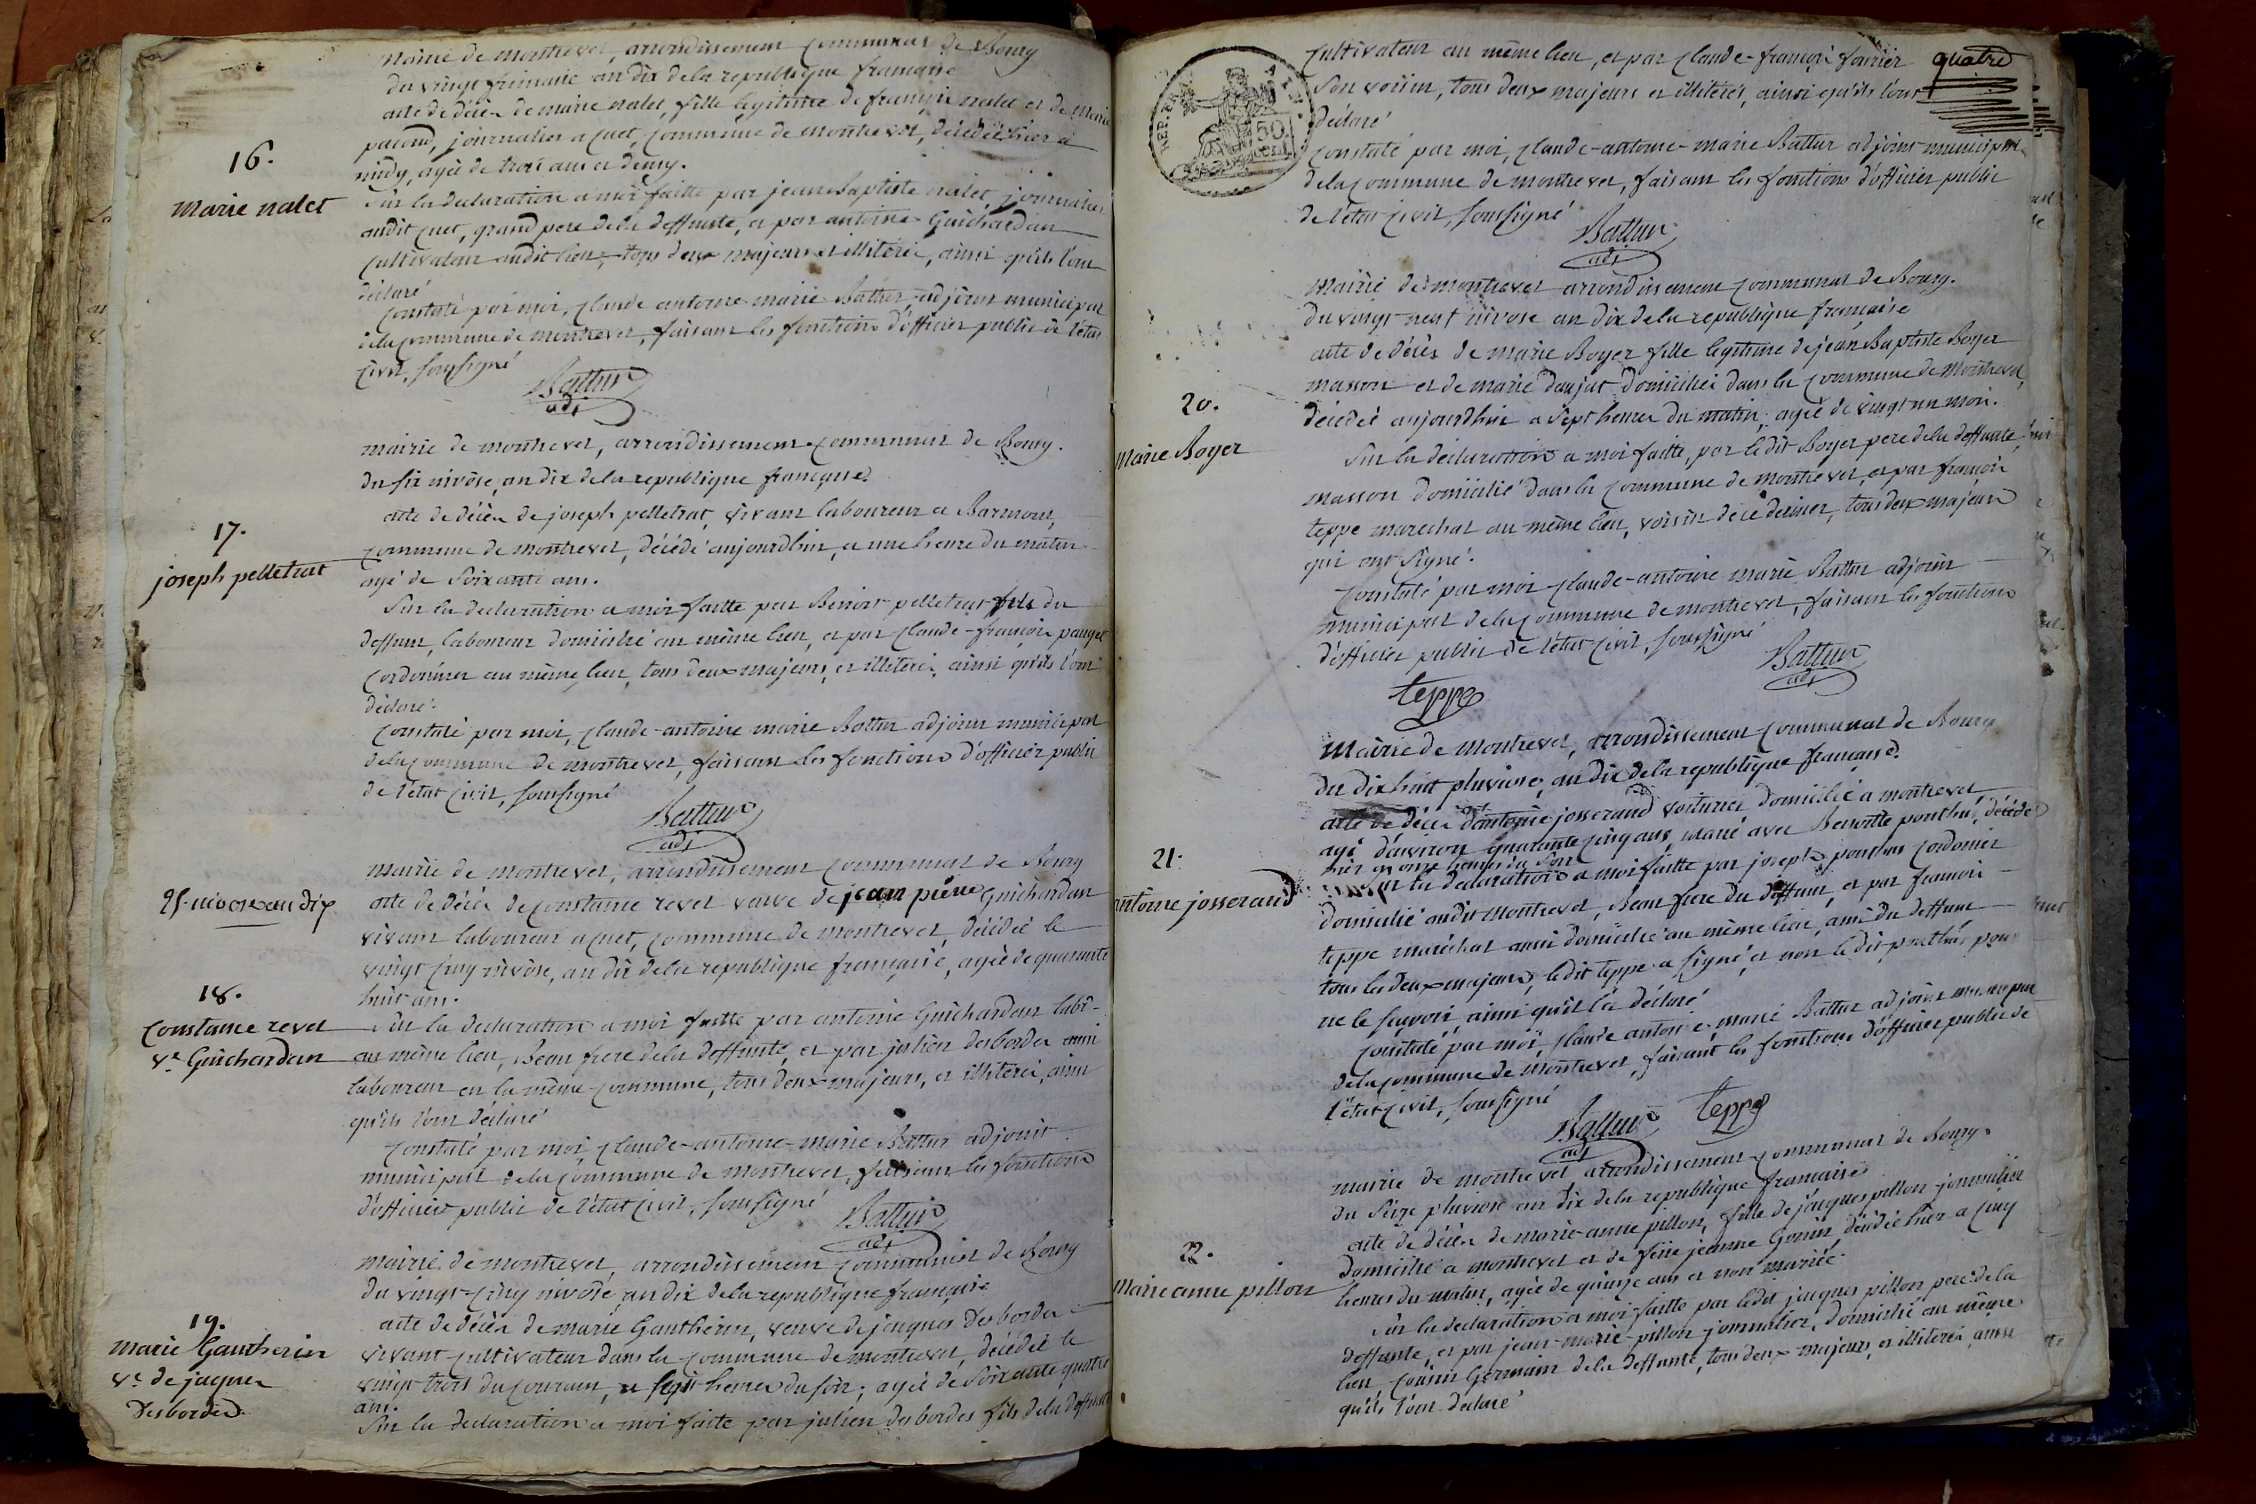 mairie de montrevel, arrondissement communal de Bourg
du vingt frimaire an dix de la republique française
acte de décès de marie nalet, fille legitime de françois nalet et de marie
pacoud, journalier a cuet, commune de montrevel, décédée hier a
midy, agée de trois ans et demy.
16.
marie nalet
Sur la declaration a moi faitte par jean Baptiste nalet, journalier
audit cuet, grand pere de la deffunte, et par antoine Guichardan
cultivateur audit lieu, tous deux majeurs et illiterés, ainsi qu'ils l'ont
déclaré
Constaté par moi, claude antoine marie Battur, adjoint municipal
de la commune de montrevel, faisant les fonctions d'officier public de l'état
civil, soussigné
Battur
adj
mairie de montrevel, arrondissement communal de Bourg.
du six nivôse, an dix de la republique française
17.
joseph pelletrat
acte de décès de joseph pelletrat, vivant laboureur a Barmont,
commune de montrevel, décédé aujourdhui, a une heure du matin
agé de soixante ans.
Sur la declaration a moi faitte par Benoit pelletrat fils du
deffunt, laboureur domicilié au même lieu, et par claude-françois pauget
cordonnier au même lieu, tous deux majeurs, et illiterés, ainsi qu'ils l'ont
déclaré.
Constaté par moi, claude-antoine marie Battur adjoint municipal
de la commune de montrevel, faisant les fonctions d'officier public
de l'état civil, soussigné
Battur
adj
mairie de montrevel, arrondissement communal de Bourg
25. nivose an dix
acte de décès de constance revel veuve de jean pierre Guichardan
vivant laboureur a cuet, commune de montrevel, décédée le
vingt cinq nivôse, an dix de la republique française, agée de quarante
huit ans.
18.
Constance revel
ve. Guichardan
Sur la declaration a moi faitte par antoine Guichardan labr.
au même lieu, Beau frere de la deffunte, et par julien desbordes aussi
laboureur en la même commune, tous deux majeurs, et illiterés, ainsi
qu'ils l'ont déclaré
Constaté par moi, claude-antoine-marie Battur adjoint
municipal de la commune de montrevel, faisant les fonctions
d'officier public de l'état civil, soussigné
Battur
adj
mairie de montrevel, arrondissement communal de Bourg
du vingt-cinq nivôse, an dix de la republique française
19.
marie Gautherin
ve. de jaques
Desbordes.
acte de décès de marie Gautherin, veuve de jaques Desbordes
vivant cultivateur dans la commune de montrevel, décédée le
vingt trois du courant, a sept heures du soir, agée de soixante quatre
ans.
Sur la declaration a moi faite par julien desbordes fils de la deffunte
quatre
REP. FRA.
50
cent
cultivateur au même lieu, et par claude-françois fourier
son voisin, tous deux majeurs et illiterés, ainsi qu'ils l'ont
déclaré
Constaté par moi, claude-antoine-marie Battur adjoint municipal
de la commune de montrevel, faisant les fonctions d'officier public
de l'état civil, soussigné
Battur
adj
mairie de montrevel arrondissement communal de Bourg.
du vingt-neuf nivose an dix de la republique française
20.
Marie Boyer
acte de décès de marie Boyer fille legitime de jean Baptiste Boyer
masson et de marie daujat domiciliés dans la commune de montrevel,
décédée aujourdhui a sept heures du matin, agée de vingt un mois.
Sur la déclaration a moi faitte, par ledit Boyer pere de la deffunte,
masson domicilié dans la commune de montrevel, et par françois
teppe marechal au même lieu, voisin de ce dernier, tous deux majeurs
qui ont signé.
Constaté par moi claude-antoine marie Battur adjoint
municipal de la commune de montrevel, faisant les fonctions
d'officier public de l'état civil, soussigné
Battur
adj
teppe
Mairie de montrevel, arrondissement communal de Bourg
du dix huit pluviose, an dix de la republique française.
21.
antoine josserand
acte de décès d'antoine josserand voiturier domicilié a montrevel
agé d'environ quarante cinq ans, marié avec Benoitte ponthus, décédé
hier a onze heures du soir
Sur la declaration a moi faitte par joseph ponthus cordonier
domicilié audit montrevel, Beau frere du deffunt, et par françois
teppe maréchal aussi domicilié au même lieu, ami du deffunt
tous les deux majeurs, ledit teppe a signé, et non ledit ponthus pour
ne le sçavoir ainsi qu'il l'a déclaré
Constaté par moi, claude antoine marie Battur adjoint municipal
de la commune de montrevel, faisant les fonctions d'officier public de
l'état civil, soussigné
Battur
adj
teppe
mairie de montrevel arrondissement communal de Bourg.
du seize pluviose an dix de la republique française
22.
Marie anne pillon
acte de décès de marie-anne pillon, fille de jaques pillon journalier
domicilié a montrevel et de feüe jeanne Gonin, décédée hier a cinq
heures du matin, agée de quinze ans et non mariée.
Sur la declaration a moi faitte par ledit jaques pillon pere de la
deffunte, et par jean-marie pillon journalier, domicilié au même
lieu cousin Germain de la deffunte, tous deux majeurs, et illiterés ainsi
qu'ils l'ont déclaré